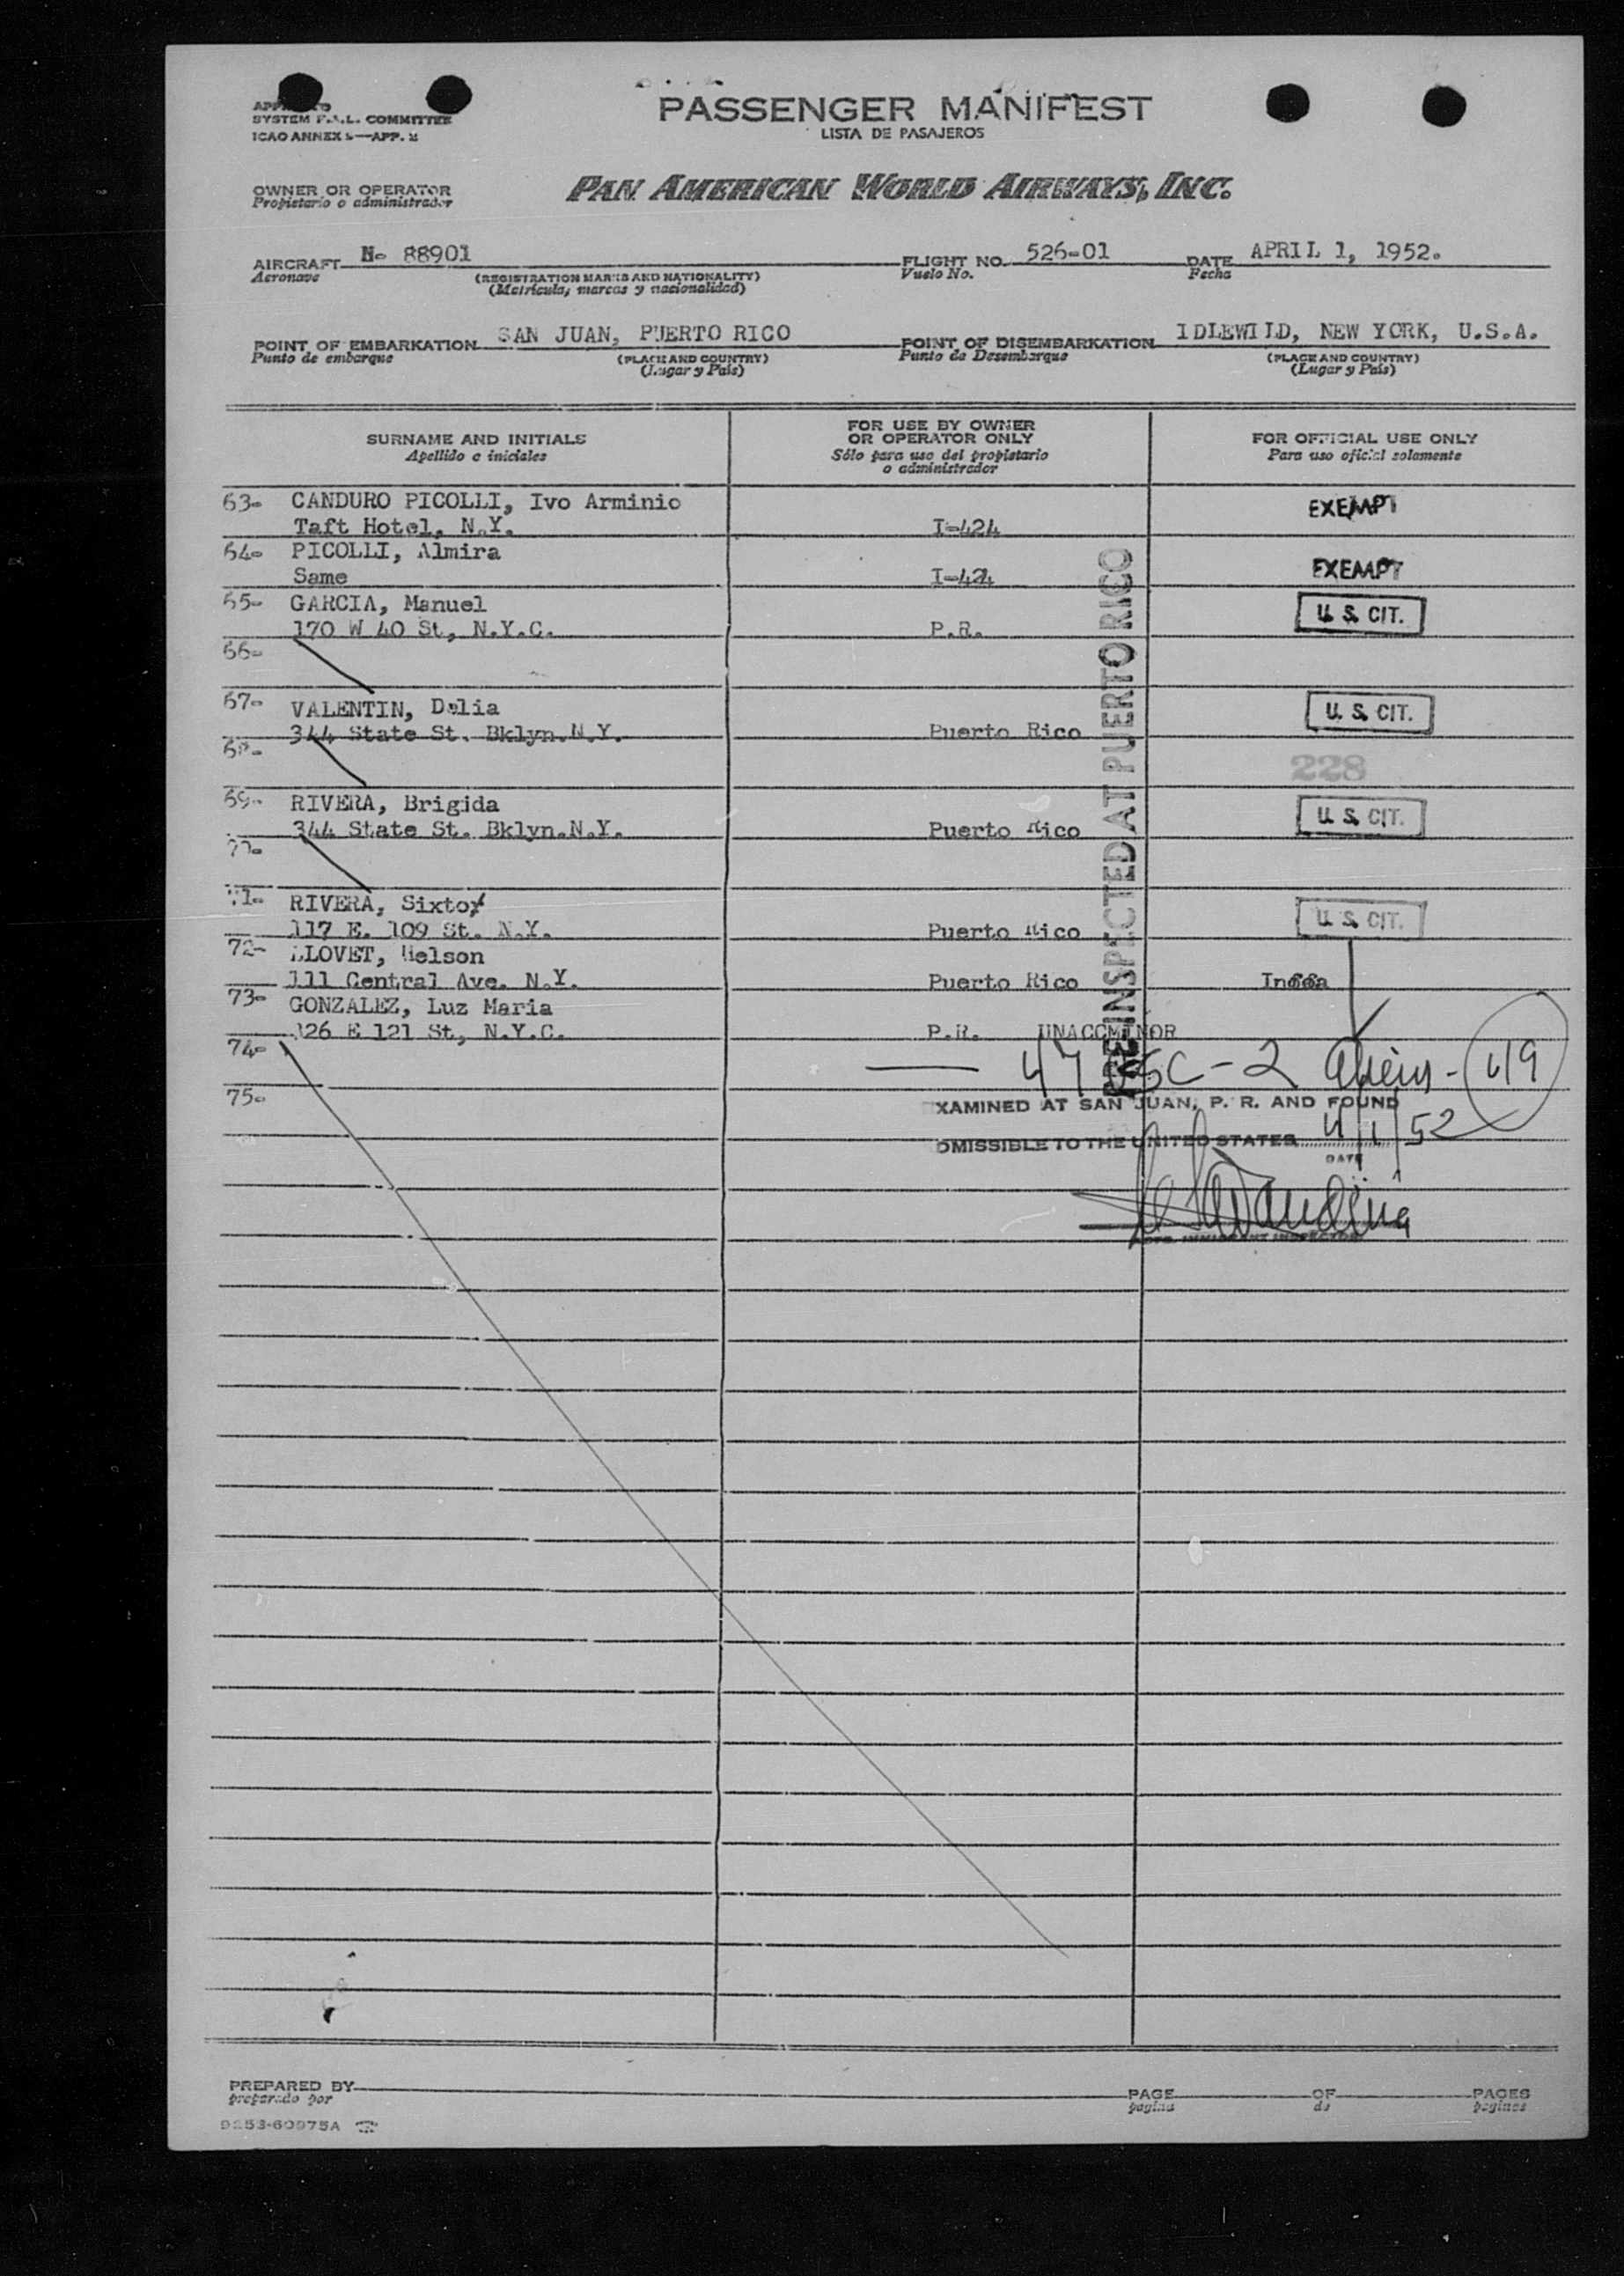 SYSTEM F.A.L. COMMITTEE
ICAO ANNEX 9—APP.
PASSENGER MANIFEST
LISTA DE PASAJEROS
OWNER OR OPERATOR
Propietario o administrador
PAN AMERICAN WORLD AIRWAYS, INC.
AIRCRAFT N- 88901
Aeronave
(REGISTRATION MARKS AND NATIONALITY)
(Matrícula, marcas y nacionalidad)
FLIGHT NO. 526-01
Vuelo No.
DATE APRIL 1, 1952.
Fecha
POINT OF EMBARKATION SAN JUAN, PUERTO RICO
Punto de embarque
(PLACE AND COUNTRY)
(Lugar y País)
POINT OF DISEMBARKATION IDLEWILD, NEW YORK, U.S.A.
Punto de Desembarque
(PLACE AND COUNTRY)
(Lugar y País)
SURNAME AND INITIALS
Apellido e iniciales
FOR USE BY OWNER
OR OPERATOR ONLY
Sólo para uso del propietario
o administrador
FOR OFFICIAL USE ONLY
Para uso oficial solamente
63- CANDURO PICOLLI, Ivo Arminio EXEMPT
Taft Hotel, N.Y. I-424
64- PICOLLI, Almira EXEMPT
Same I-424
65- GARCIA, Manuel U. S. CIT.
170 W 40 St, N.Y.C. P.R.
66-
67- VALENTIN, Delia U. S. CIT.
344 State St. Bklyn.N.Y. Puerto Rico
68-
228
69- RIVERA, Brigida U. S. CIT.
344 State St. Bklyn.N.Y. Puerto Rico
70-
71- RIVERA, Sixto U. S. CIT.
117 E. 109 St. N.Y. Puerto Rico
72- LLOVET, Nelson
111 Central Ave. N.Y. Puerto Rico
73- GONZALEZ, Luz Maria
326 E 121 St, N.Y.C. P.R. UNACCMINOR
PREINSPECTED AT PUERTO RICO
74-
47 USC-2 Aliens - 49
75-
EXAMINED AT SAN JUAN, P. R. AND FOUND
ADMISSIBLE TO THE UNITED STATES 4/1/52
DATE
PREPARED BY
preparado por
PAGE
página
OF
de
PAGES
páginas